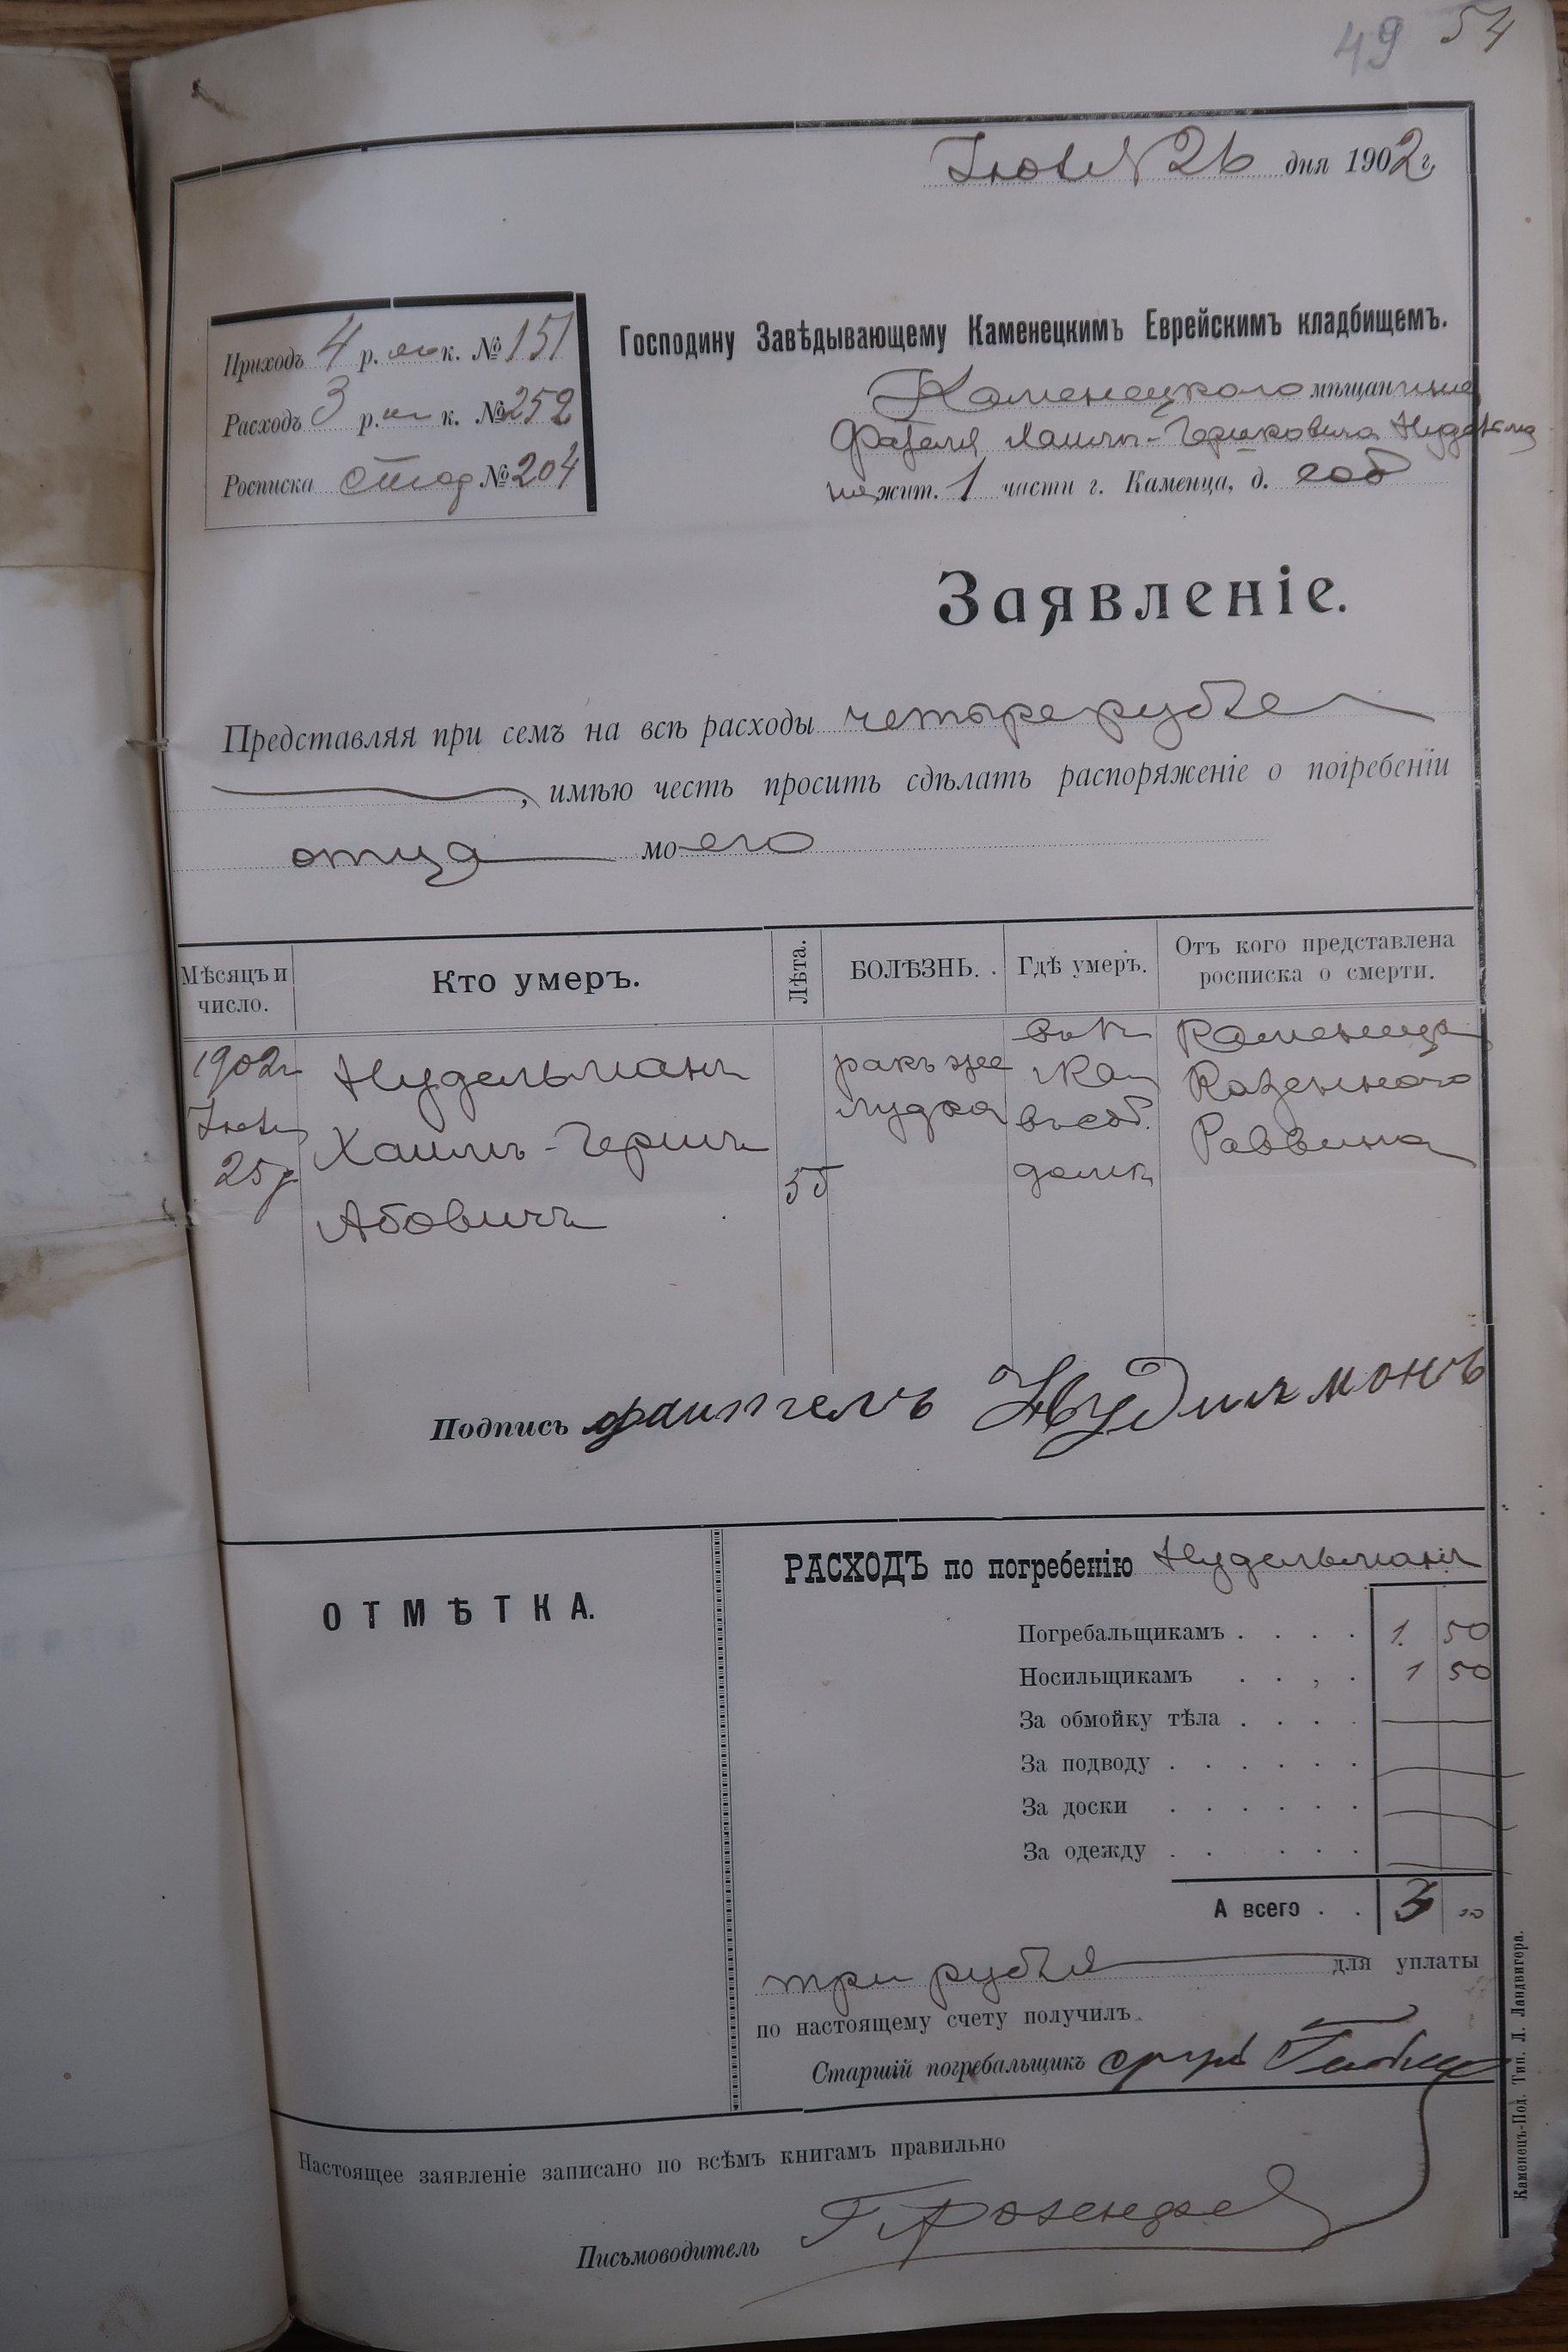 49 54
Іюля 26 дня 1902 г.
Приходъ 4 р. к. № 151
Расходъ 3 р. к. № 252
Росписка № 204
Господину Завѣдывающему Каменецкимъ Еврейскимъ кладбищемъ.
Каменецкого мѣщанина
жит. 1 части г. Каменца, д. соб
Заявленіе.
Представляя при семъ на всѣ расходы четыре рубле
, имѣю честь просить сдѣлать распоряженіе о погребеніи
отца моего
Мѣсяцъ и число.
Кто умеръ.
Лѣта.
БОЛѢЗНЬ.
Гдѣ умеръ.
Отъ кого представлена росписка о смерти.
1902г
Іюля
25
Нудельманъ
Хаимъ-Гершъ
Абовичъ
55
ракъ же
лудка
въ соб.
домѣ
Каменца
Казенного
Раввина
Подпись файгель Нудильмонъ
ОТМѢТКА.
РАСХОДЪ по погребенію Нудельманъ
Погребальщикамъ . . . . 1. 50
Носильщикамъ . . , . 1 50
За обмойку тѣла . . . .
За подводу . . . . . .
За доски . . . . . .
За одежду . . . . . .
А всего . . 3
три рубля для уплаты
по настоящему счету получилъ.
Старшій погребальщикъ
Настоящее заявленіе записано по всѣмъ книгамъ правильно
Письмоводитель
Каменецъ-Под. Тип. Л. Ландвигера.